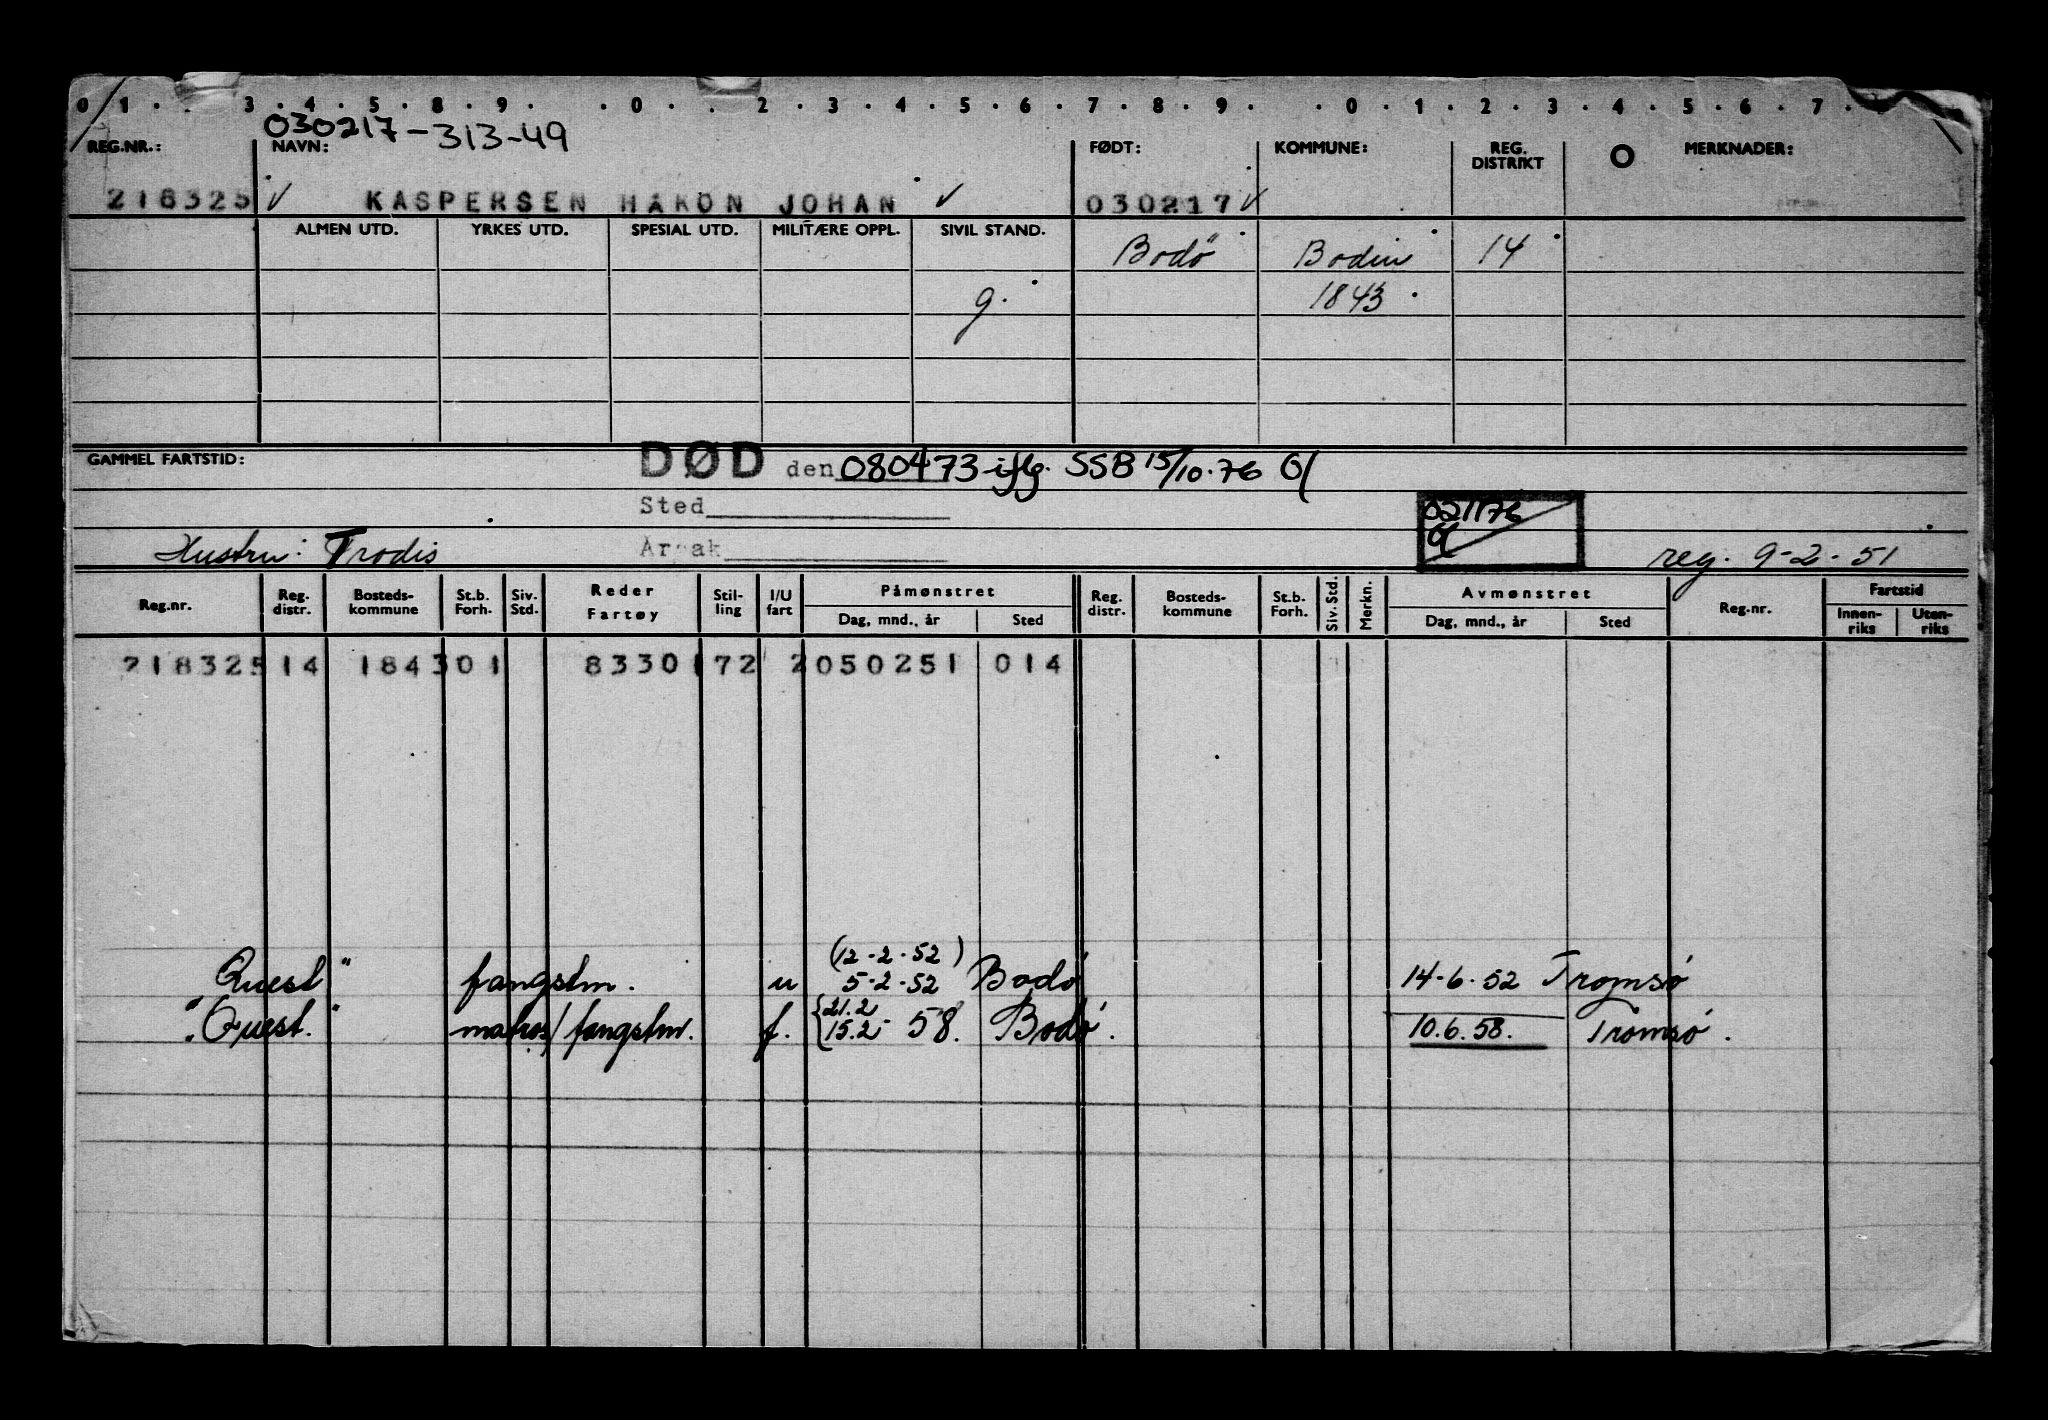 0 1 . . 3 . 4 . 5 . 8 . 9 . . 0 . . 2 . 3 . 4 . 5 . 6 . 7 . 8 . 9 . . 0 . 1 . 2 . 3 . 4 . 5 . 6 . 7 .
030217-313-49
REG.NR.: NAVN: FØDT: KOMMUNE: REG. DISTRIKT MERKNADER:
218325 ✓ KASPERSEN HAKON JOHAN ✓ 030217 ✓
ALMEN UTD. YRKES UTD. SPESIAL UTD. MILITÆRE OPPL. SIVIL STAND.
Bodø Bodin 14
g. 1843
GAMMEL FARTSTID: DØD den 080473 iflg. SSB 15/10-76
Sted
021176
Hustru: Trodis Årsak reg. 9-2-51
Reg.nr. Reg. distr. Bosteds-kommune St.b. Forh. Siv. Std. Reder Fartøy Stil-ling I/U fart Påmønstret Dag, mnd., år Sted Reg. distr. Bosteds-kommune St.b. Forh. Siv. Std. Merkn. Avmønstret Dag, mnd., år Sted Reg.nr. Fartstid Innen-riks Uten-riks
218325 14 1843 01 8330 172 2 050251 014
(12-2-52)
Quest" fangstm. u 5-2-52 Bodø 14-6-52 Tromsø
21.2
"Quest." matros/fangstm. f. 15.2 58. Bodø. 10.6.58. Tromsø.